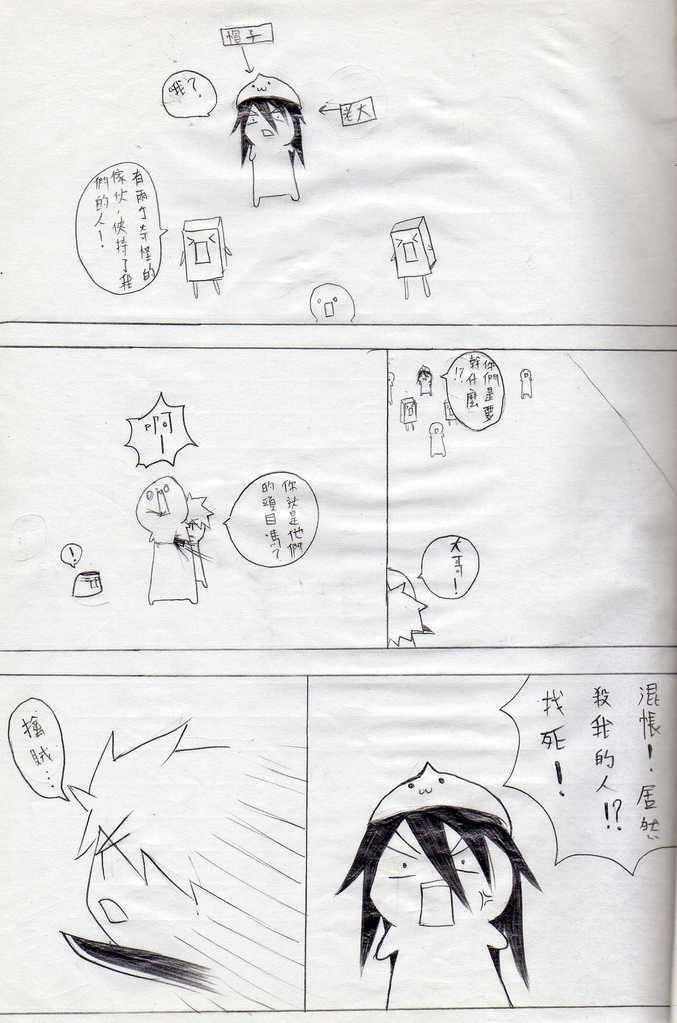 帽子
哦？
老大
有兩个奇怪的
傢伙，俠持了我
們的人！
你們是要
幹什麼
!?
大哥！
啊！
你就是他們
的頭目嗎？
！
混帳！居然
殺我的人!?
找死！
擒賊…